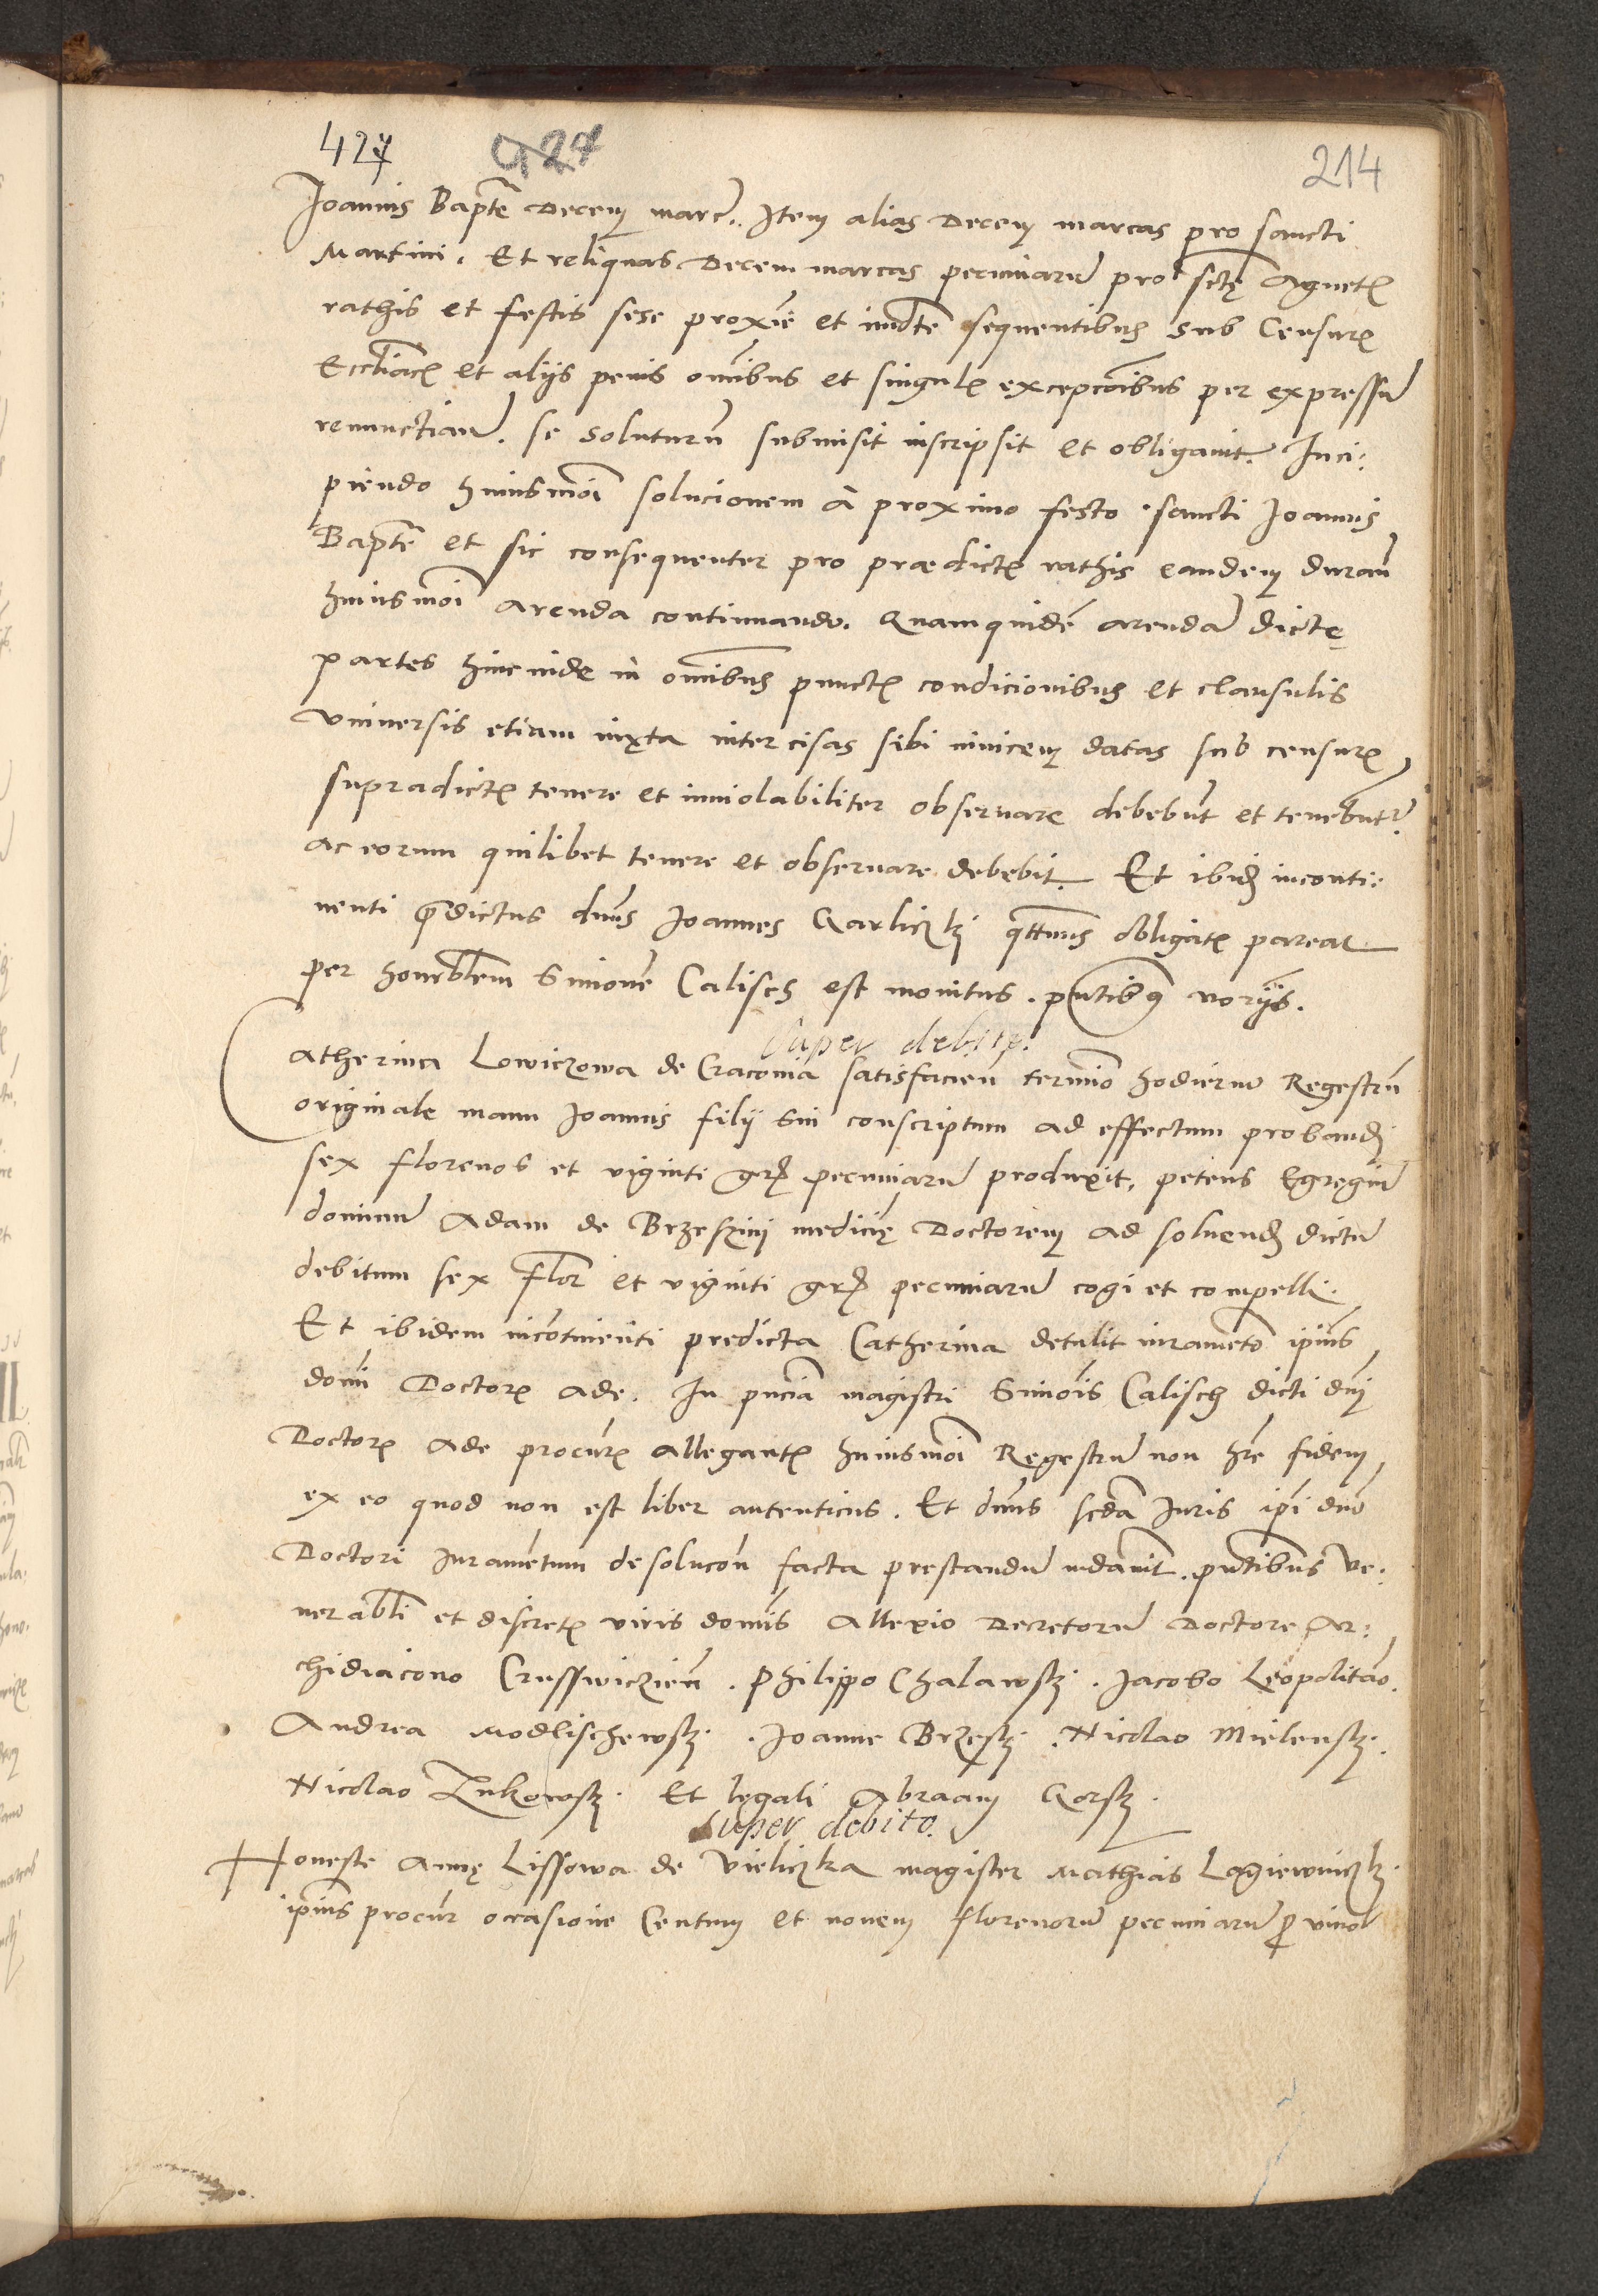 427 427 214
Joannis Bapte Decem marc. Item alias Decem marcas pro sancti
Martini. Et reliquas Decem marcas pecuniarum pro scte Agnetis
rathis et festis sese proxie et imdte sequentibus sub Censuris
Eccliacis et alijs penis omibus et singulis excepcoibus per expressum
renunctiand. se soluturum submisit inscripsit et obligauit. Inci:
piendo huiusmoi solucionem à proximo festo sancti Joannis
Bapte et sic consequenter pro prædictis rathis eandem duran
huiusmoi arenda continuando. Quamquidem arendam dicte
partes hincinde in omibus punctis condicionibus et clausulis
vniuersis etiam iuxta intercisas sibi inuicem datas sub censuris
supradictis tenere et inuiolabiliter obseruare debebunt et tenebuntur
ac eorum quilibet tenere et obseruare debebit. Et ibidem inconti:
nenti predictus dnus Joannes Garliczkj qttinus obligatis pareat
per honorblem Simonem Calisch est monitus. pntibus noriis.
Super debito.
Catherina Lowiczowa de Craconia satisfacien termio hodierno Regestrum
originale manu Joannis filij sui conscriptum ad effectum probandi
sex florenos et viginti gros pecuniarum produxit, petens Egregium
dominum Adam de Brzeszinj medicie Doctorem ad soluendum dictum
debitum sex Flor et viginti gros pecuniarum cogi et compelli.
Et ibidem incontinenti predicta Catherina detulit iurameto ipius
domi Doctoris Ade. In pncia magistri Simois Calisch dicti dni
Doctoris Ade procuris allegantis huiusmoi Regestrum non hre fidem
ex eo quod non est liber autenticus. Et dnus scdam Juris ipi dno
Doctori Juramentum de solucon facta prestandum mdauit. pntibus Ve:
nerabli et discretis viris domis Allexio Decretorum Doctore Ar:
chidiacono Crusswiczien. Philippo Chalawskj. Jacobo Leopolitano.
Andrea Modlischewskj. Joanne Brzeskj. Nicolao Mielenskj.
Nicolao Zukowskj. Et legali Abraam Gorskj.
Super debito.
Honeste Anne Lissowa de Vieliczka magister Mathias Lagiewniczkj
ipius procur occasione Centum et nouem florenorum pecuniarum pro vino